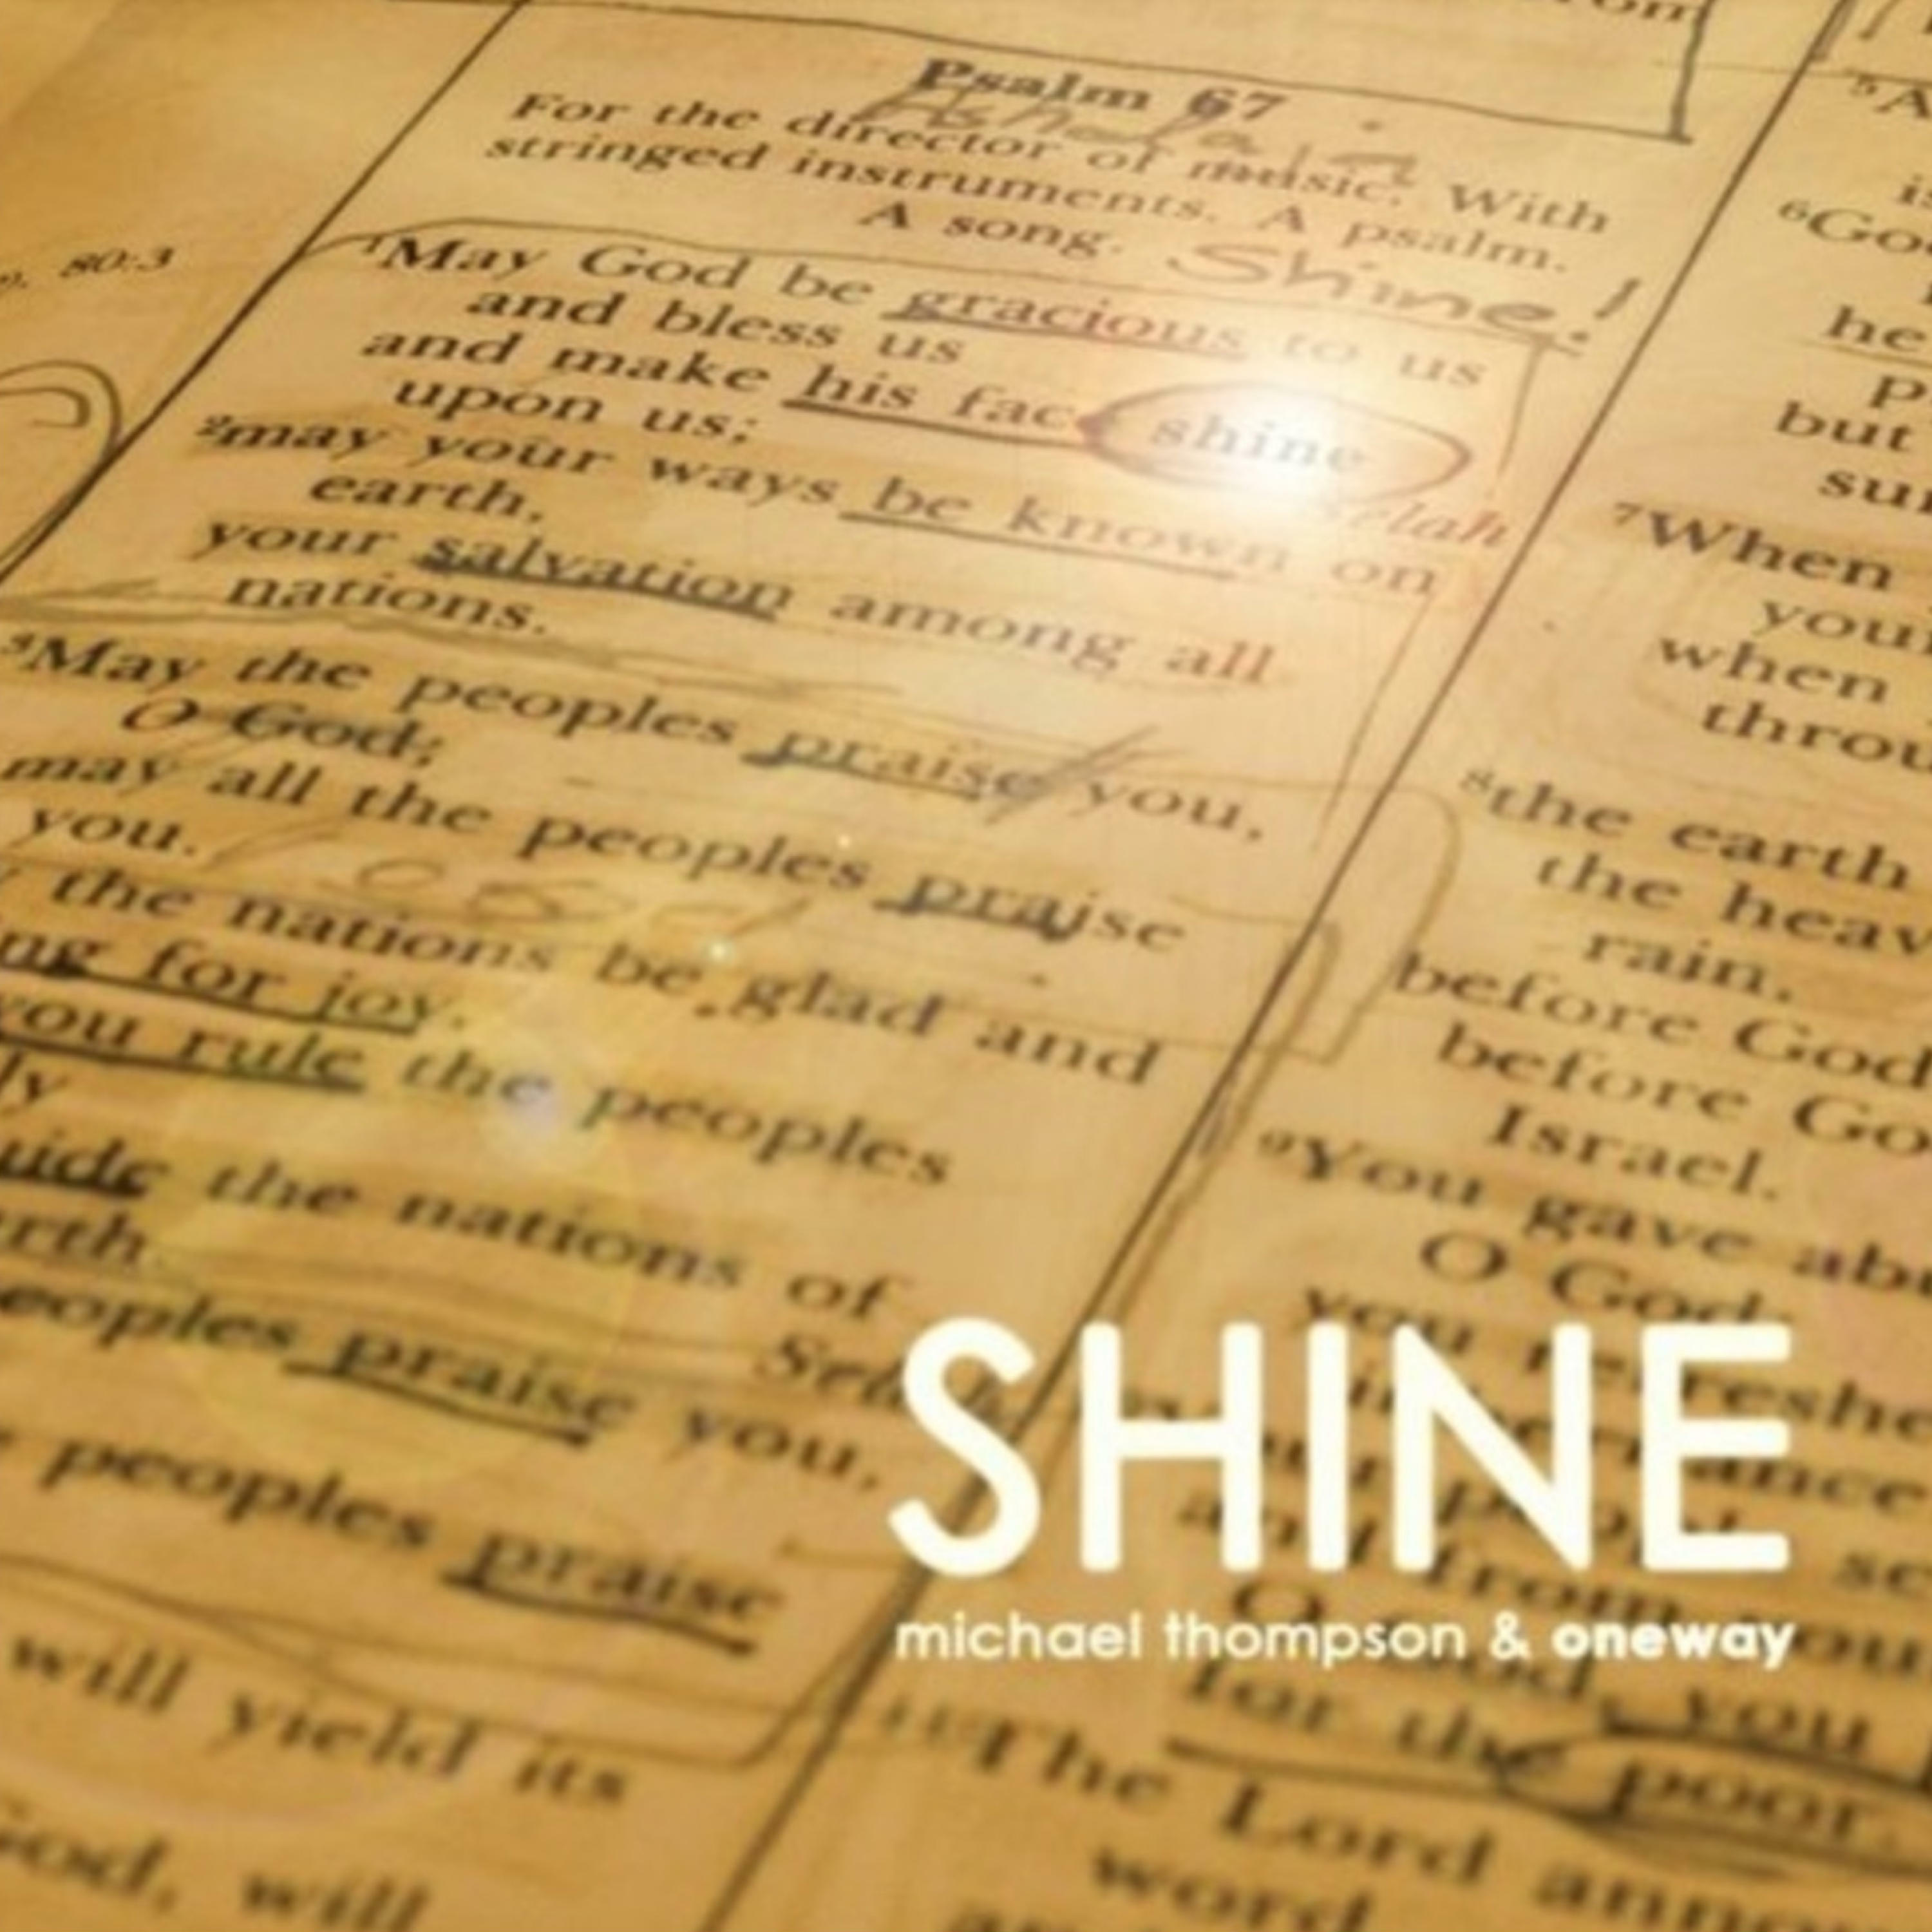 80:3
Psalm 67
For the director of music. With
stringed instruments. A psalm.
A song.
Shine!
¹May God be gracious to us
and bless us
and make his fac shine
upon us;
Selah
²may your ways be known on
earth,
your salvation among all
nations.
³May the peoples praise you,
O God;
may all the peoples praise
you.
the nations be glad and
ng for joy,
you rule the peoples
ly
uide the nations of
rth.
eoples praise you,
peoples praise
will yield its
God, will
⁵A
is
⁶Go
he
p
but
su
⁷When
you
when
throu
⁸the earth
the heav
rain,
before God
before Go
Israel.
⁹You gave abu
O God;
you refreshe
and from you
O God, you
for the poor.
¹¹The Lord anno
word
SHINE
michael thompson & oneway